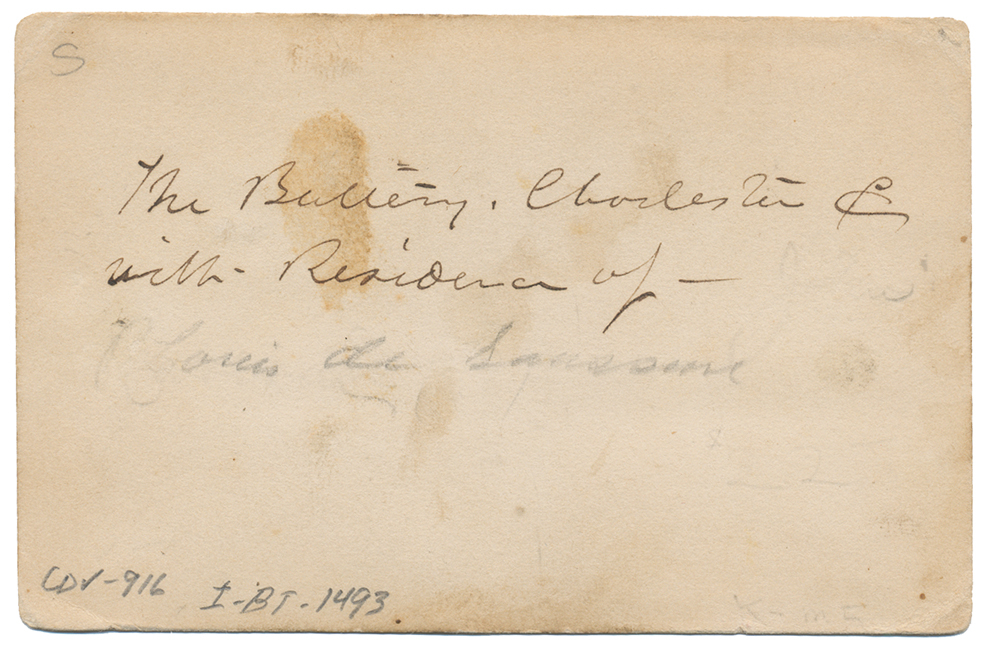 S
The Battery. Charleston &
with Residence of —
Louis de Saussure
CDV-916
I-BT-1493